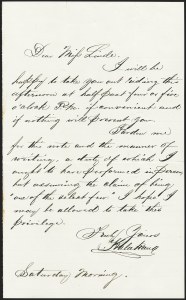 Dear Miss Linde.
I will be
happy to take you out riding this
afternoon at half past four or five
o'clock P.M. if convenient and
if nothing will prevent you.
Pardon me
for the note and the manner of
writing, a duty of which I
ought to have performed in person
but assuming the claim of being
one of the select few. I hope I
may be allowed to take this
privilege.
Truly Yours
Saturday Morning.